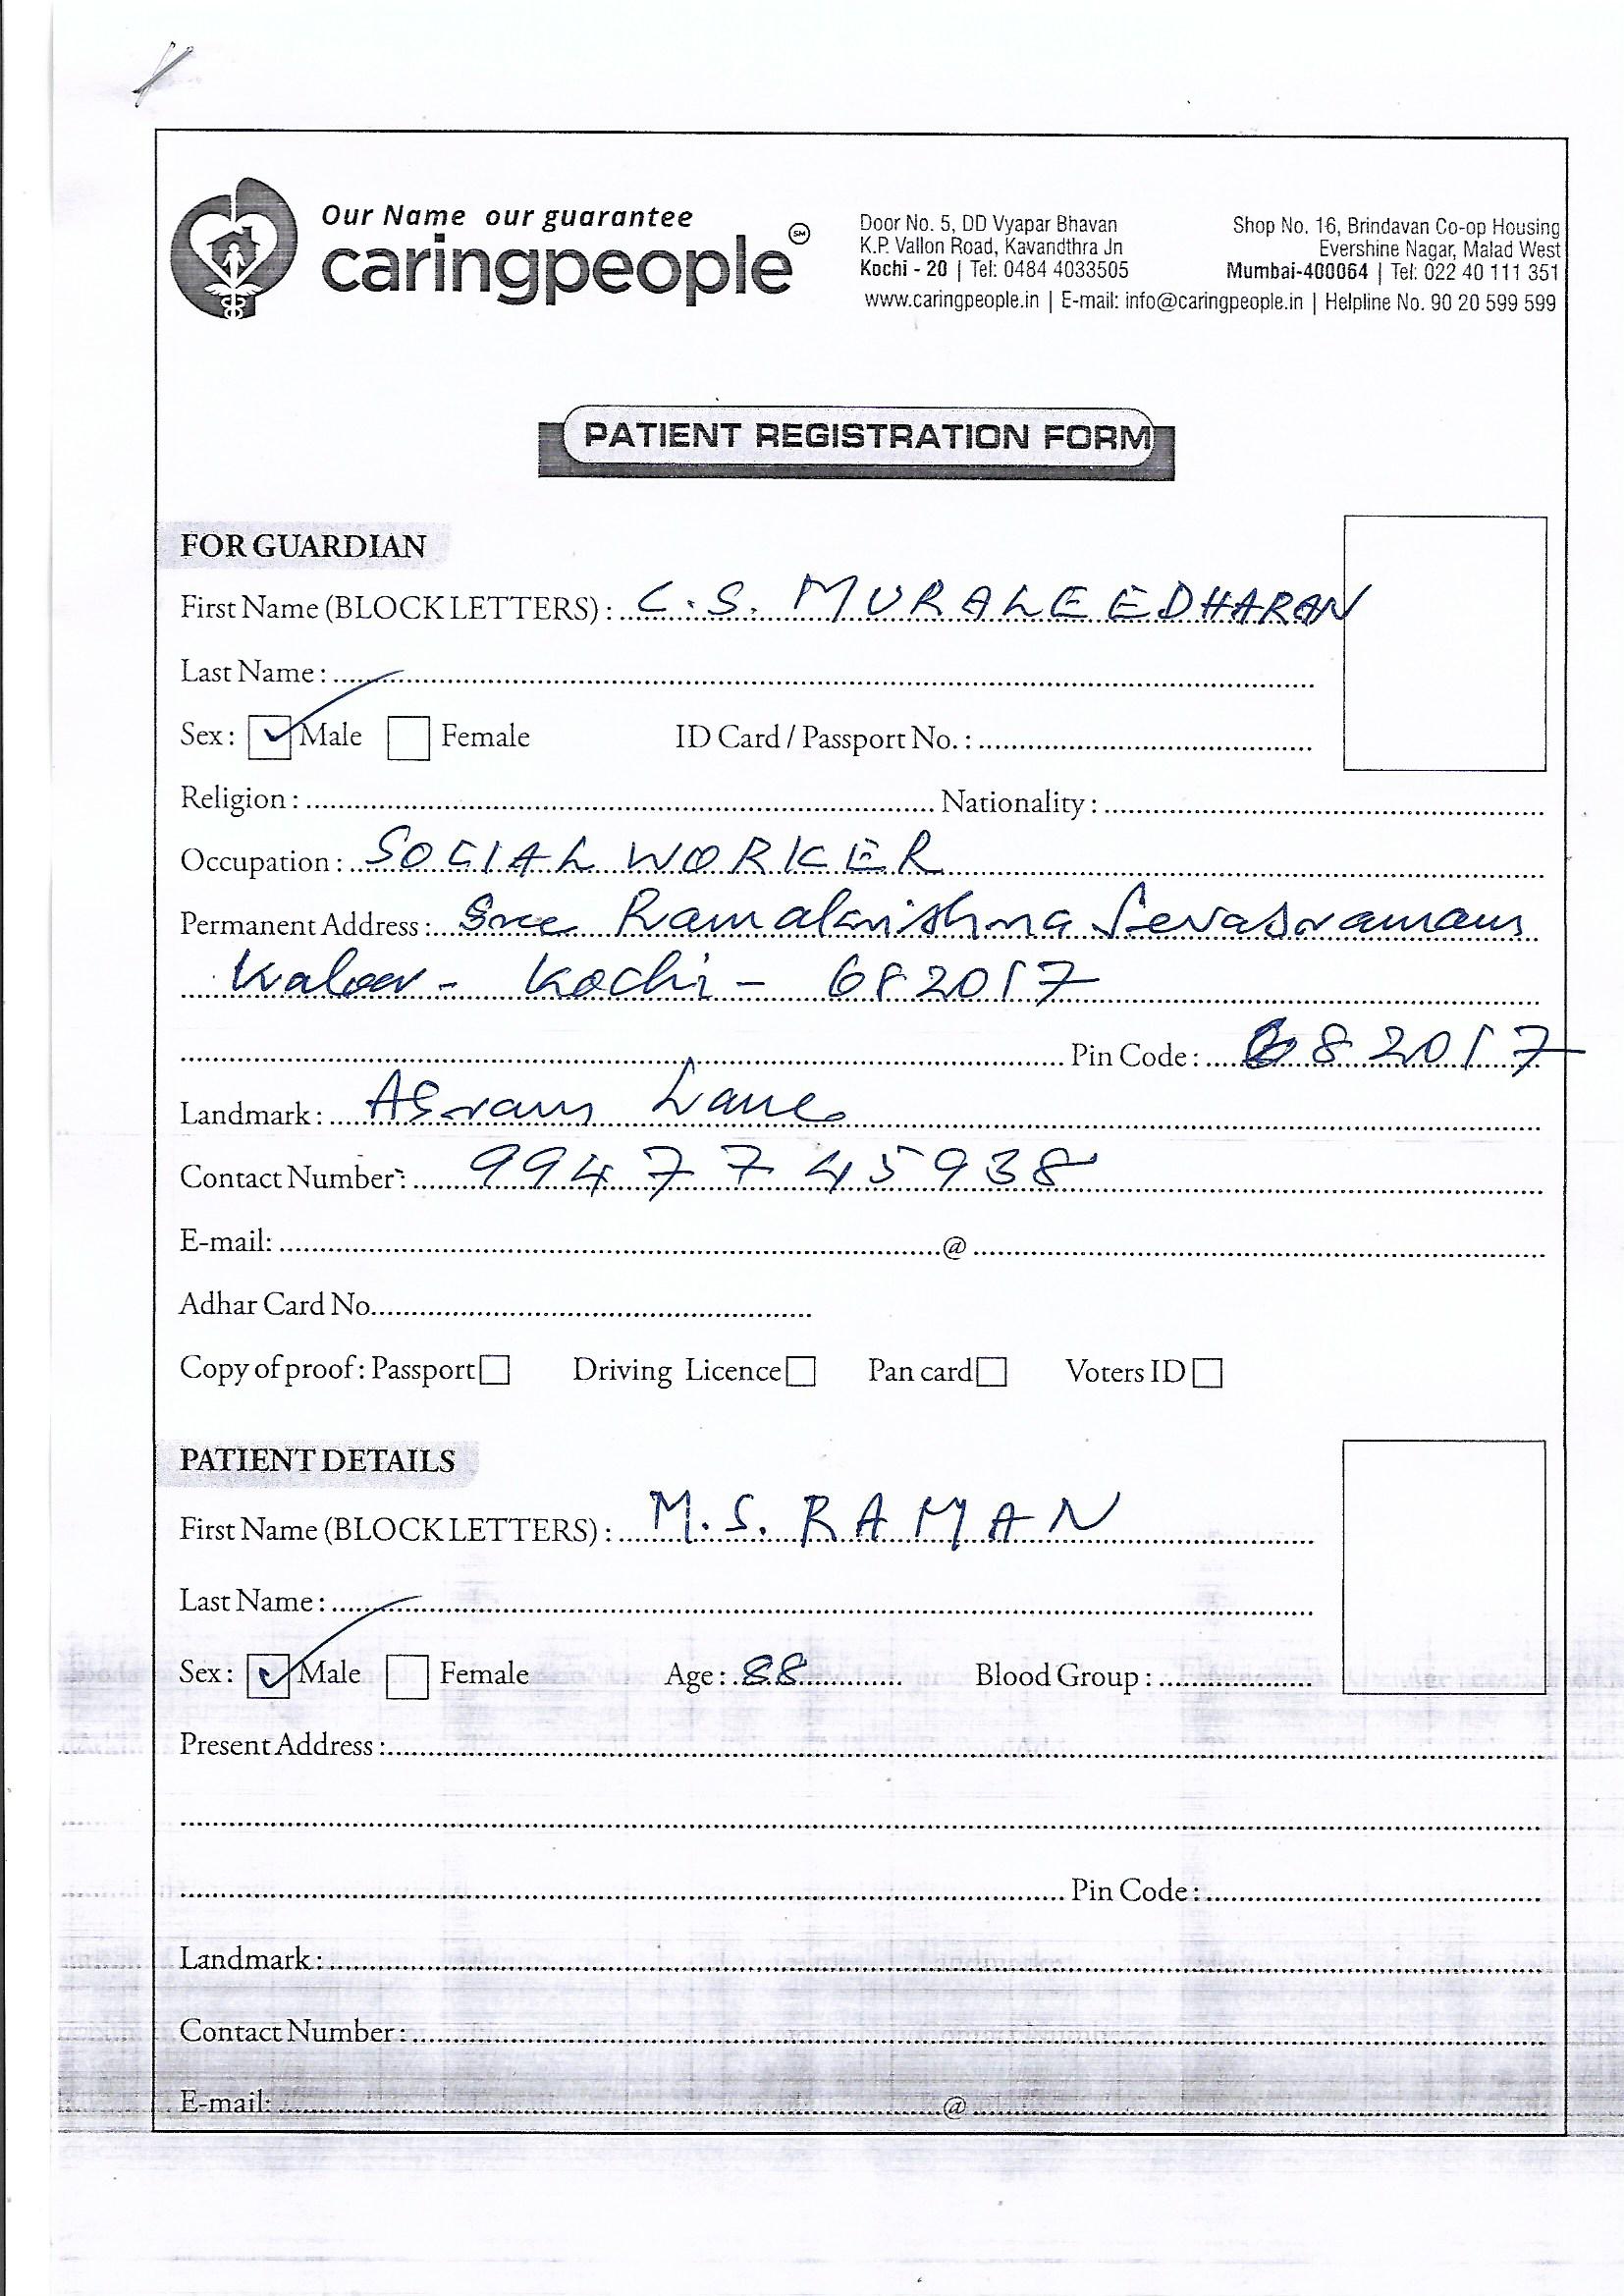 Our Name our guarantee
caringpeople SM
Door No. 5, DD Vyapar Bhavan
K.P. Vallon Road, Kavandthra Jn
Kochi - 20 | Tel: 0484 4033505
Shop No. 16, Brindavan Co-op Housing
Evershine Nagar, Malad West
Mumbai-400064 | Tel: 022 40 111 351
www.caringpeople.in | E-mail: info@caringpeople.in | Helpline No. 90 20 599 599
PATIENT REGISTRATION FORM
FOR GUARDIAN
First Name (BLOCK LETTERS) : C.S. MURALEEDHARAN
Last Name :
Sex : Male Female ID Card / Passport No. :
Religion : Nationality :
Occupation : SOCIAL WORKER
Permanent Address : Sree Ramakrishna Sevasramam
Kaloor - Kochi - 682017
Pin Code : 682017
Landmark : ASram Lane
Contact Number : 9947745938
E-mail: @
Adhar Card No.
Copy of proof : Passport Driving Licence Pan card Voters ID
PATIENT DETAILS
First Name (BLOCK LETTERS) : M.S. RAMAN
Last Name :
Sex : Male Female Age : 88 Blood Group :
Present Address :
Pin Code :
Landmark :
Contact Number :
E-mail: @